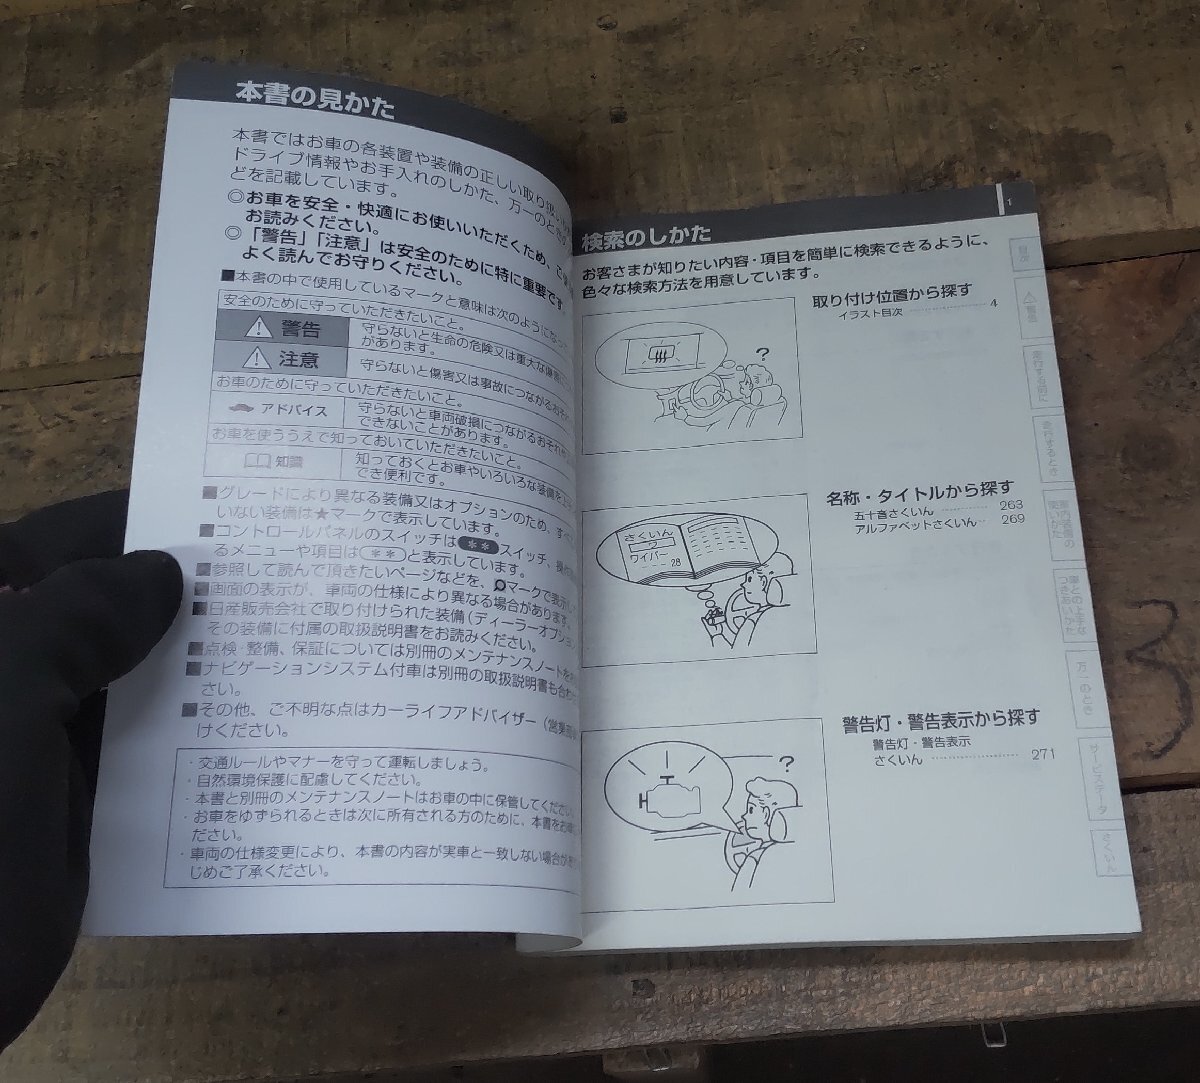 本書の見かた
本書ではお車の各装置や装備の正しい取り扱い
ドライブ情報やお手入れのしかた、万一のときの
どを記載しています。
◎お車を安全・快適にお使いいただくため、ご
お読みください。
◎「警告」「注意」は安全のために特に重要です
よく読んでお守りください。
■本書の中で使用しているマークと意味は次のようになっ
安全のために守っていただきたいこと。
警告
守らないと生命の危険又は重大な傷害に
があります。
注意
守らないと傷害又は事故につながるおそ
お車のために守っていただきたいこと。
アドバイス
守らないと車両破損につながるおそれや
できないことがあります。
お車を使ううえで知っておいていただきたいこと。
知識
知っておくとお車やいろいろな装備を
でき便利です。
■グレードにより異なる装備又はオプションのため、すべ
いない装備は★マークで表示しています。
■コントロールパネルのスイッチは(＊＊)スイッチ、操
るメニューや項目は(＊＊)と表示しています。
■参照して読んで頂きたいページなどを、マークで表示し
■画面の表示が、車両の仕様により異なる場合があります。
■日産販売会社で取り付けられた装備(ディーラーオプション
その装備に付属の取扱説明書をお読みください。
■点検・整備、保証については別冊のメンテナンスノートを
■ナビゲーションシステム付車は別冊の取扱説明書も合わ
さい。
■その他、ご不明な点はカーライフアドバイザー(営業
けください。
・交通ルールやマナーを守って運転しましょう。
・自然環境保護に配慮してください。
・本書と別冊のメンテナンスノートはお車の中に保管してください。
・お車をゆずられるときは次に所有される方のために、本書をお車に
ださい。
・車両の仕様変更により、本書の内容が実車と一致しない場合が
じめご了承ください。
1
検索のしかた
お客さまが知りたい内容・項目を簡単に検索できるように、
色々な検索方法を用意しています。
?
取り付け位置から探す
イラスト目次 ………… 4
さくいん
ワ
ワイパー
28
名称・タイトルから探す
五十音さくいん ………… 263
アルファベットさくいん… 269
?
警告灯・警告表示から探す
警告灯・警告表示
さくいん ………… 271
目次
警告
走行する前に
走行するとき
室内装備の
使いかた
車との上手な
つきあいかた
万一のとき
サービスデータ
さくいん
3